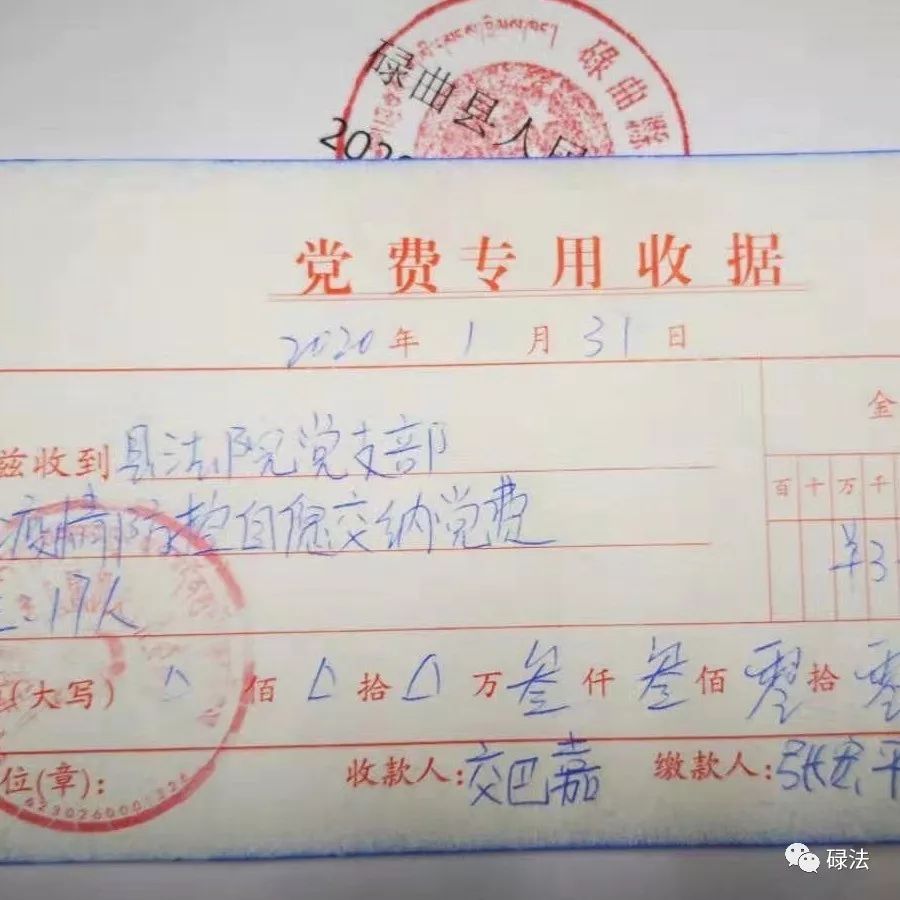 碌曲县
碌曲县人民
202
党费专用收据
2020年1月31日
金
兹收到县法院党支部
百十万千
疫情防控自愿交纳党费
¥3
17人
(大写) 0佰0拾0万叁仟叁佰零拾零
位(章): 收款人:交巴嘉 缴款人:张宏平
碌法